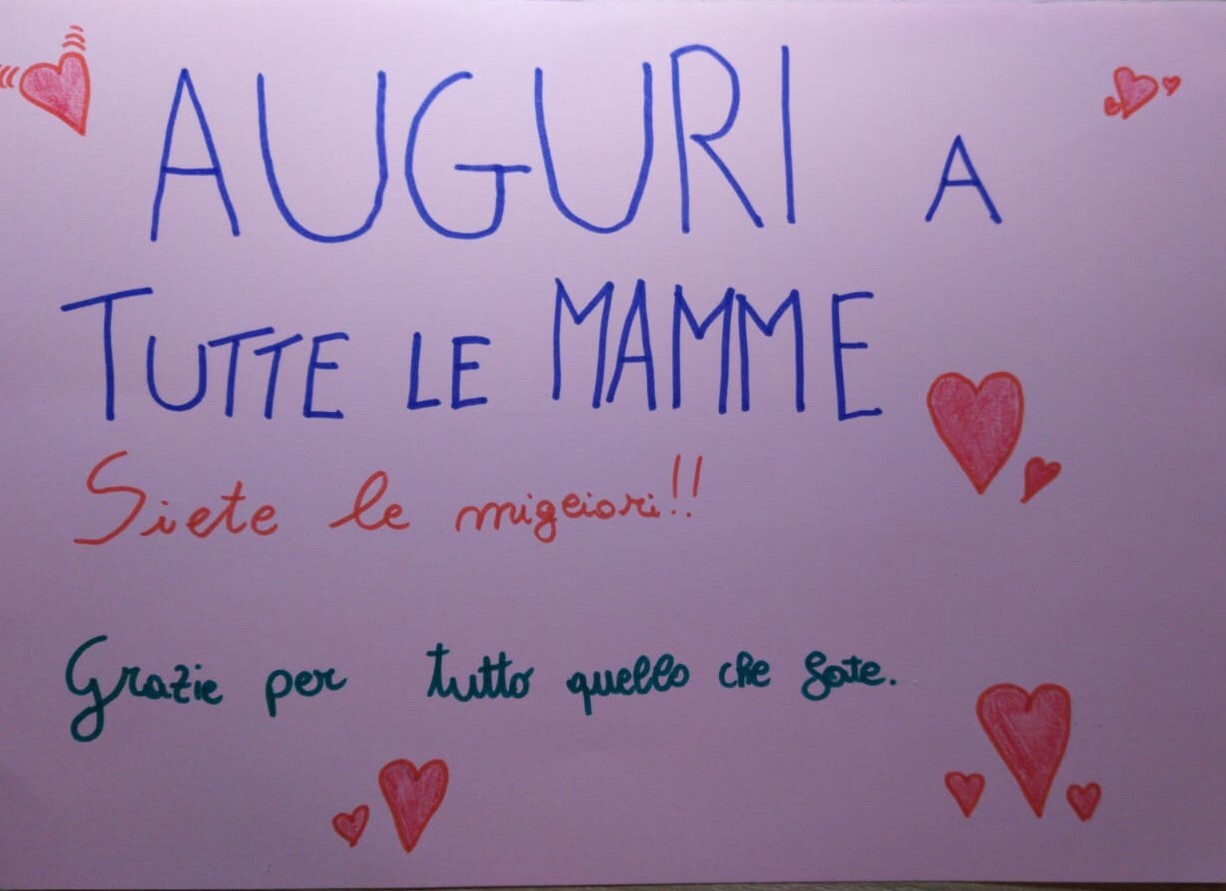 AUGURI A
TUTTE LE MAMME
Siete le migliori!!
Grazie per tutto quello che fate.